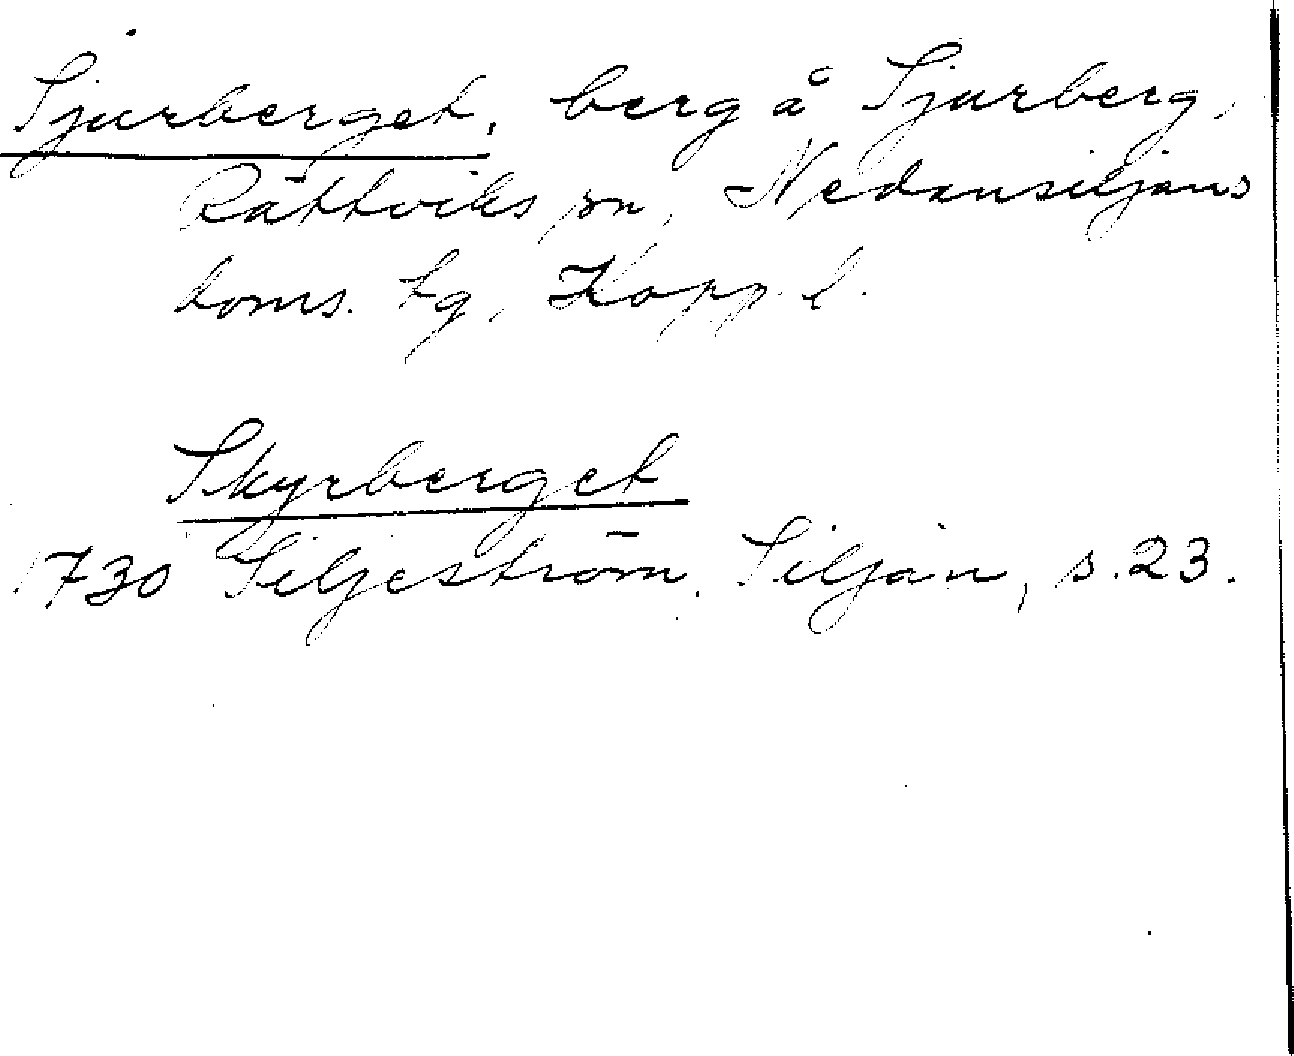 Sjurberget, berg å Sjurberg,
Rättviks sn, Nedansiljans
doms. tg, Kopp. l.
Skyrberget
1730 Siljeström, Siljan, s. 23.